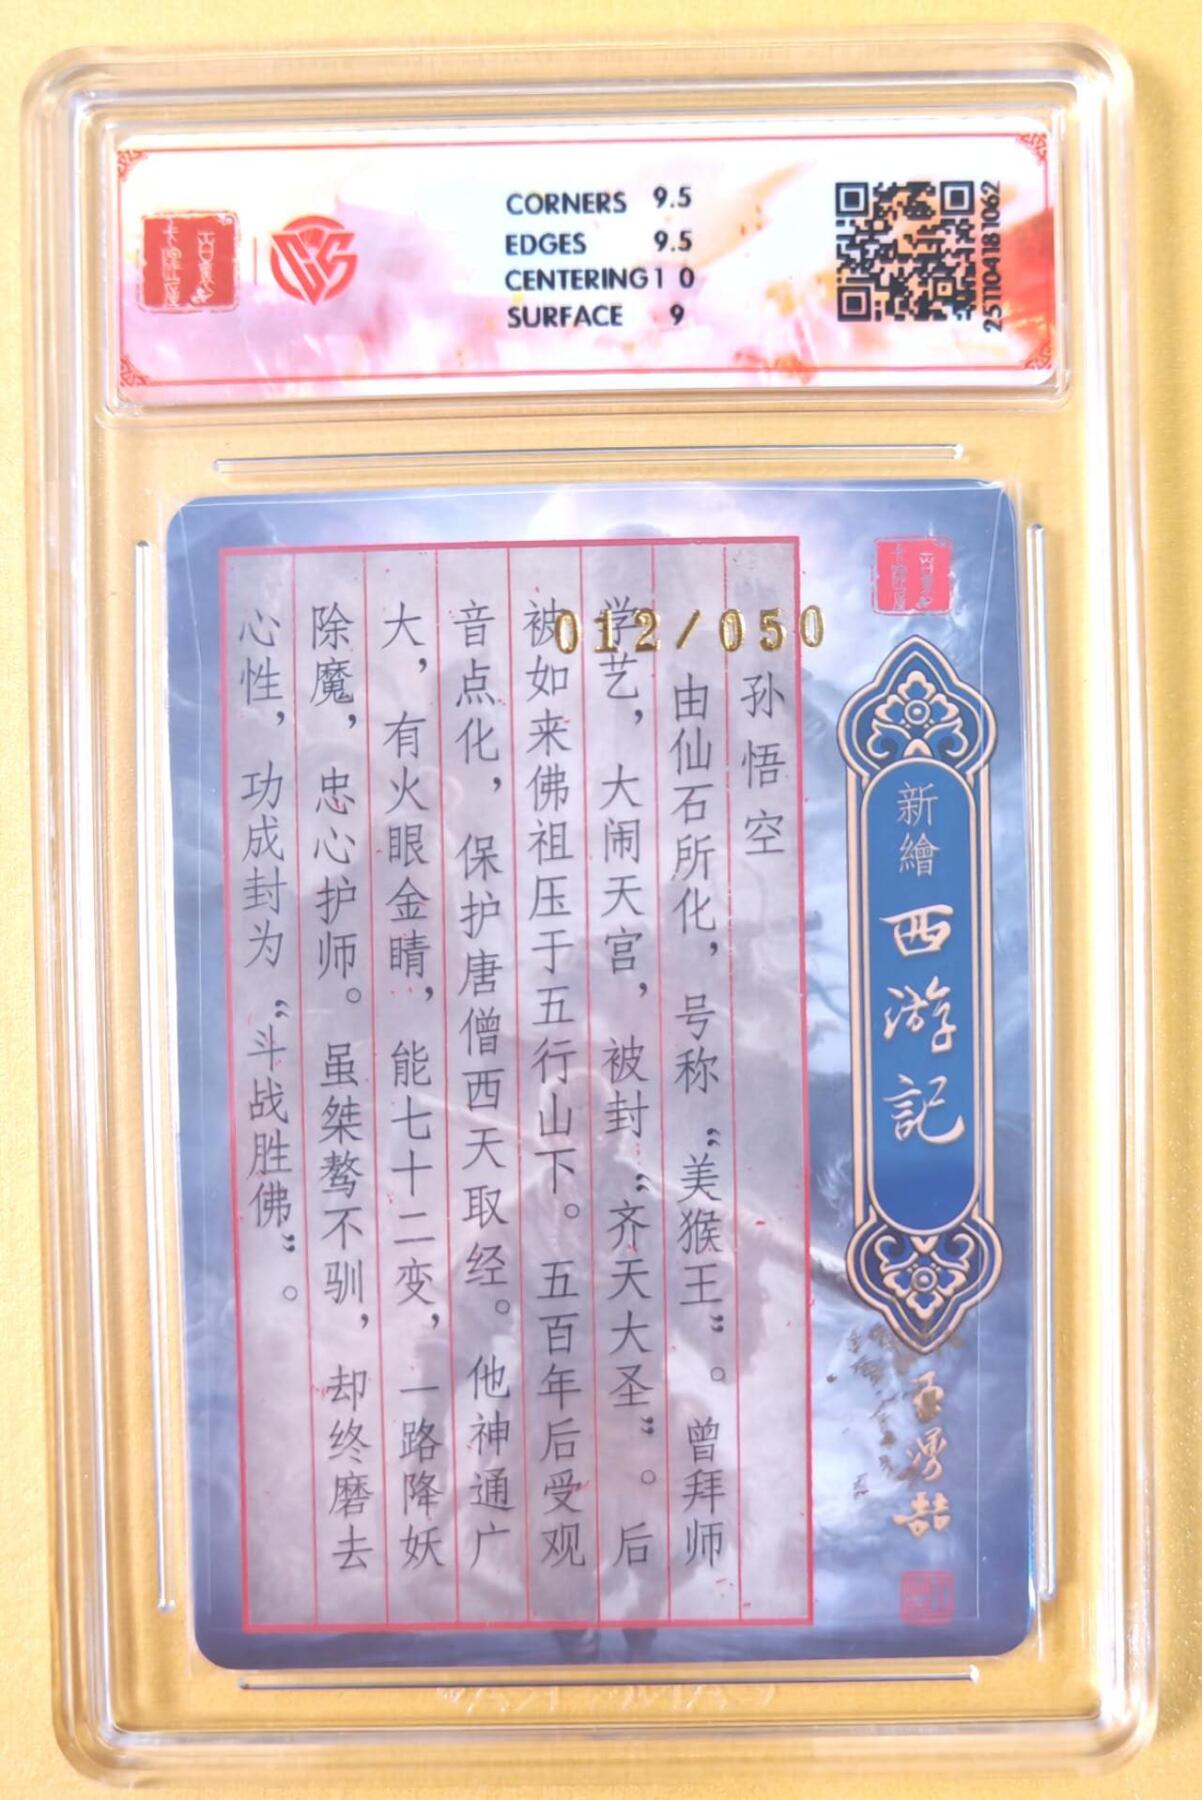 CORNERS 9.5
EDGES 9.5
CENTERING 10
SURFACE 9
251104181062
012/050
孙悟空
由仙石所化，号称“美猴王”。曾拜师
学艺，大闹天宫，被封“齐天大圣”。后
被如来佛祖压于五行山下。五百年后受观
音点化，保护唐僧西天取经。他神通广
大，有火眼金睛，能七十二变，一路降妖
除魔，忠心护师。虽桀骜不驯，却终磨去
心性，功成封为“斗战胜佛”。
新繪
西游記